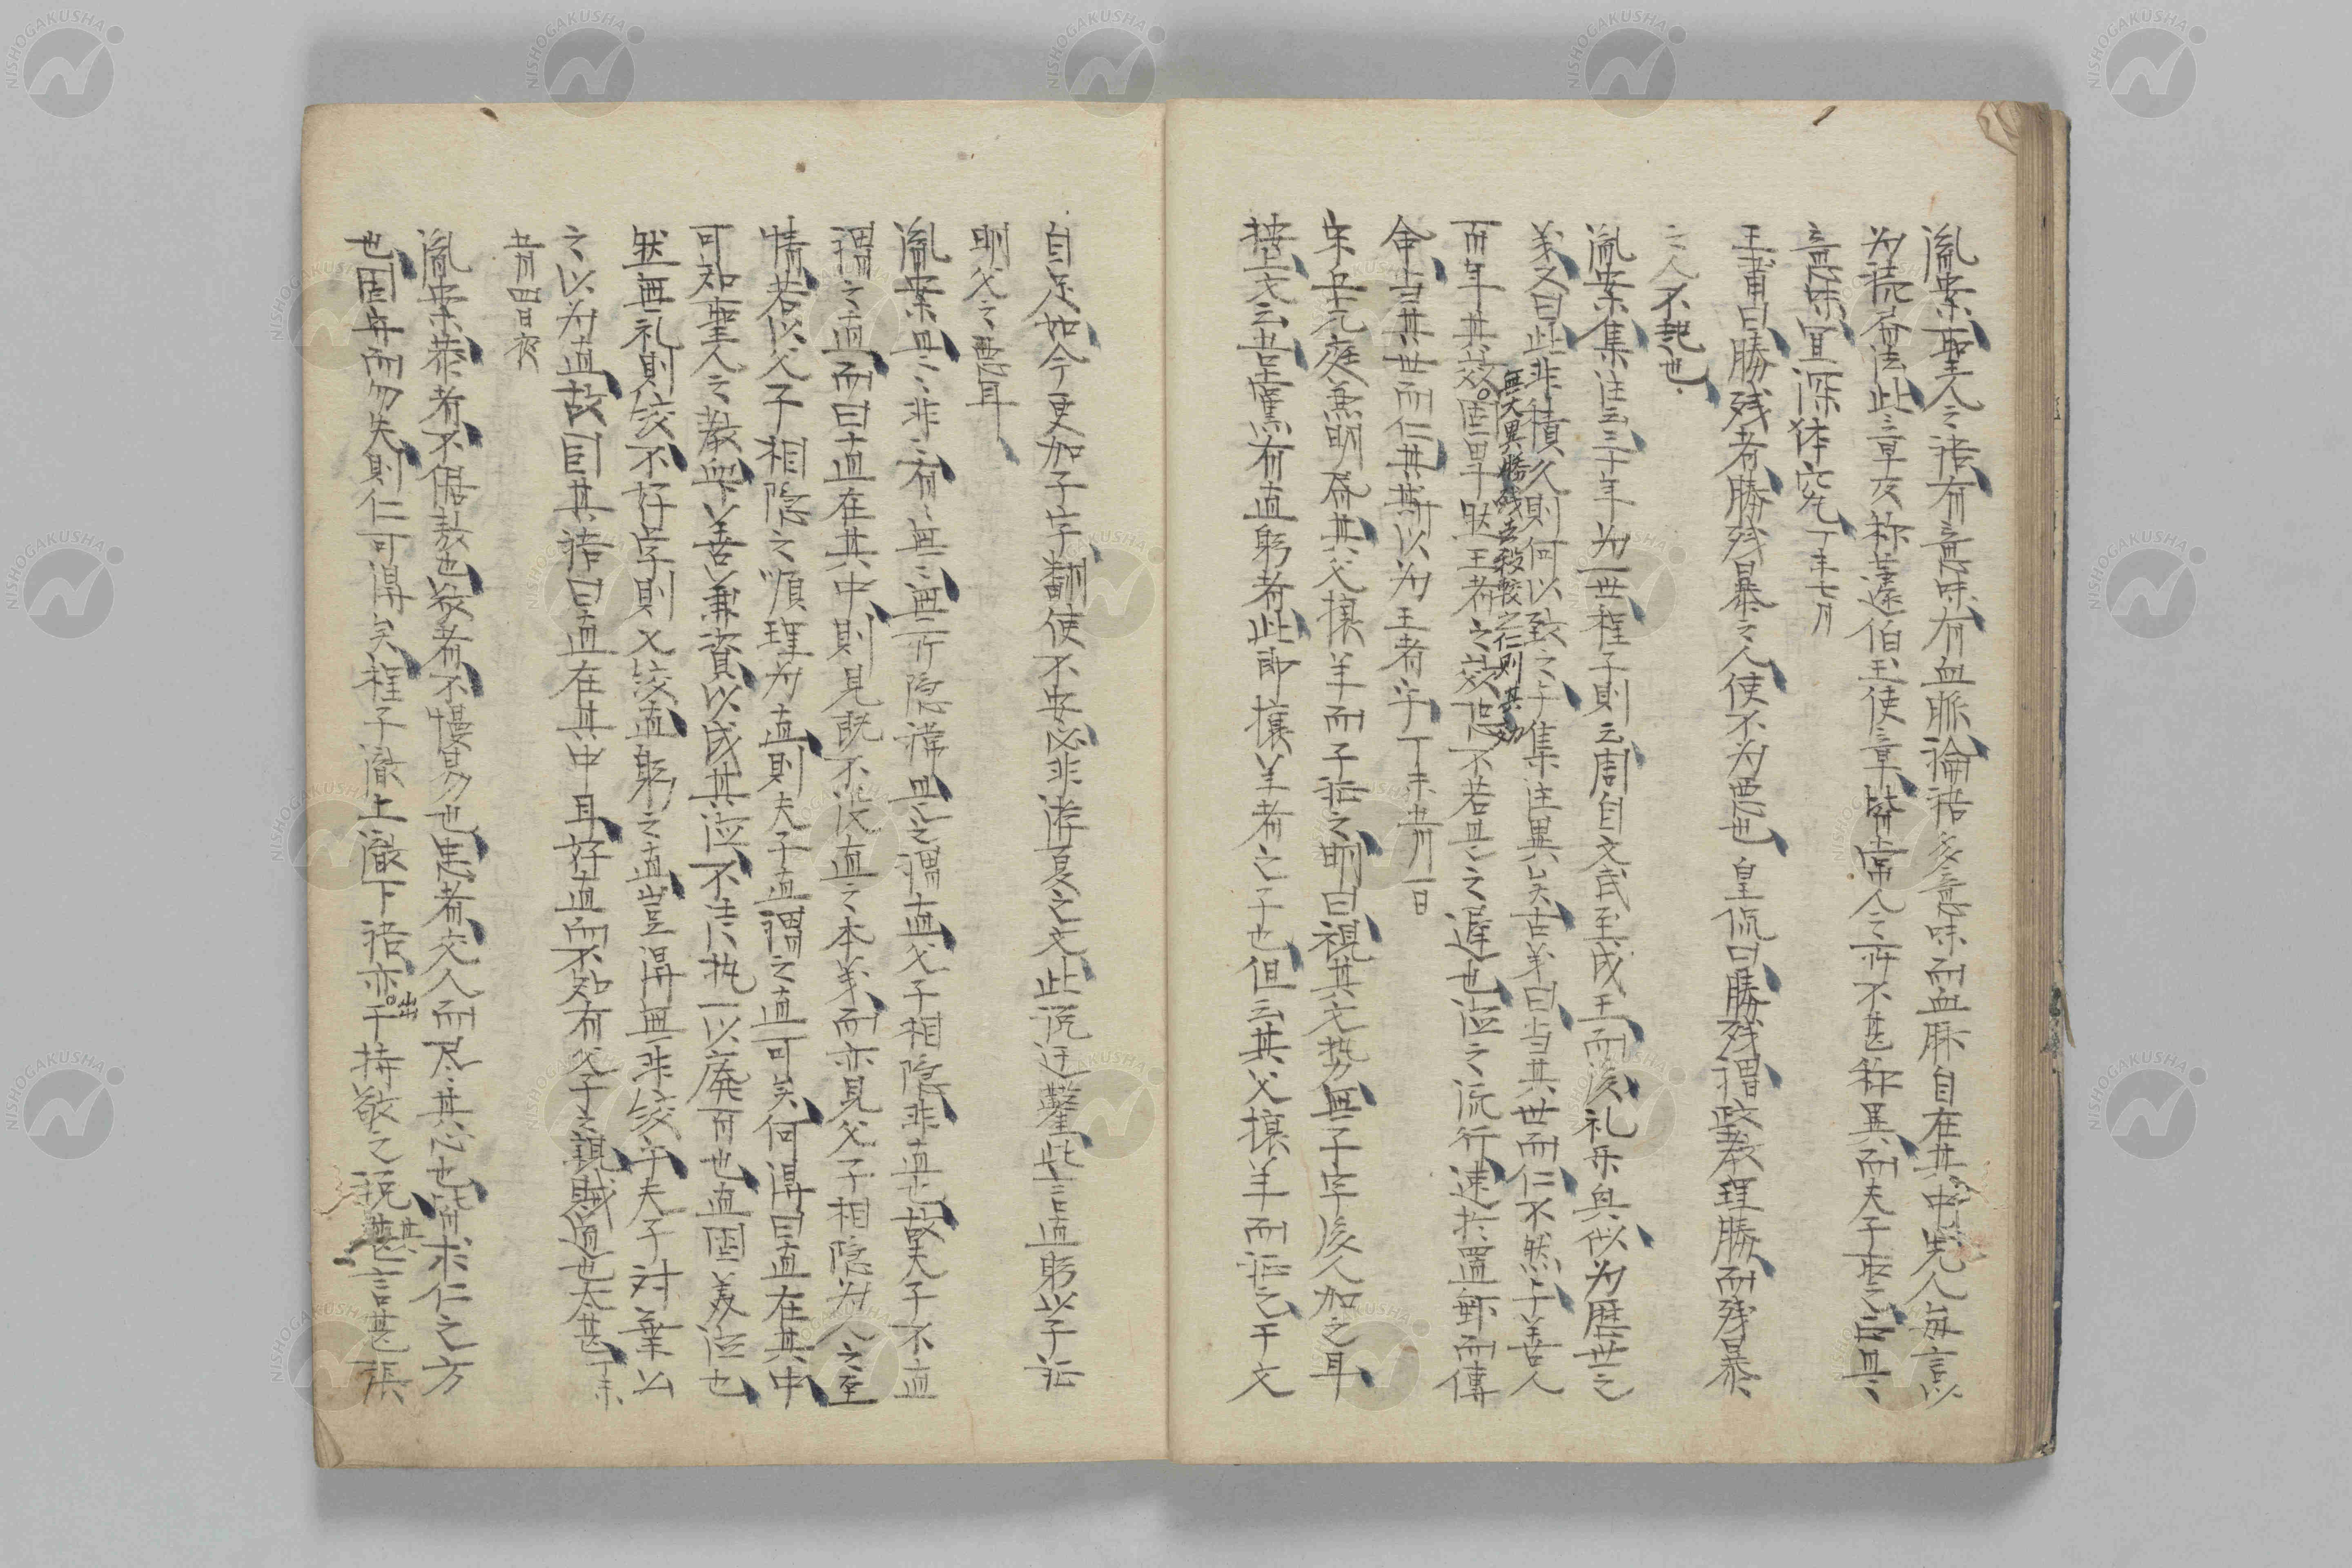 胤案聖人之語有意味有血脈論語多意味而血脈自在其中先人每言以
为読居法此章及称蘧伯玉使章皆常人之所不甚称異而夫子亟之曰其
意味宜深体究丁未七月
王甫曰勝残者勝残暴之人使不为悪也 皇侃曰勝残謂政教理勝而残暴
之人不起也
胤案集注云三十年为一世程子則云周自文武至成王而後礼楽興似为歴世之
義又曰此非積久則何以致之乎集注異以矣古義曰当其世而仁不然乎善人
百年其效固畢然王者之效恐不若是之遅也徳之流行速於置郵而傳
無大異勝残去殺較之仁則其効
命当其世而仁其斯以为王者乎丁未七月一日
朱平元庭无明啓其父攘羊而子証之明曰視其文勢無子字後人加之耳
按上文云吾党有直躬者此即攘羊者之子也但云其父攘羊而証之于文
自足如今更加子字翻使不安必非諸夏之文此説迂鑿此言直躬以子証
明父之悪耳
胤案是是非非有有無無無所隠諱是之謂直父子相隠非直也故夫子不直
謂之直而曰直在其中則見既不没直之本義而亦見父子相隠为人之至
情若以父子相隠之順理为直則夫子直謂之直可矣何得曰直在其中
可知聖人之教衆以善兼資以成其徳不法执一以廃百也直固美徳也
然無礼則絞不好学則又絞直躬之直豈得無非絞乎夫子対葉公
之以为直故因其語曰直在其中耳好直而不知有父子之親賊道也太甚丁未
七月四日夜
胤案恭者不倨敖也敬者不慢易也忠者交人而尽其心也皆求仁之方
也固守而勿失則仁可得矣程子徹上徹下語亦出于持敬之説其言甚張